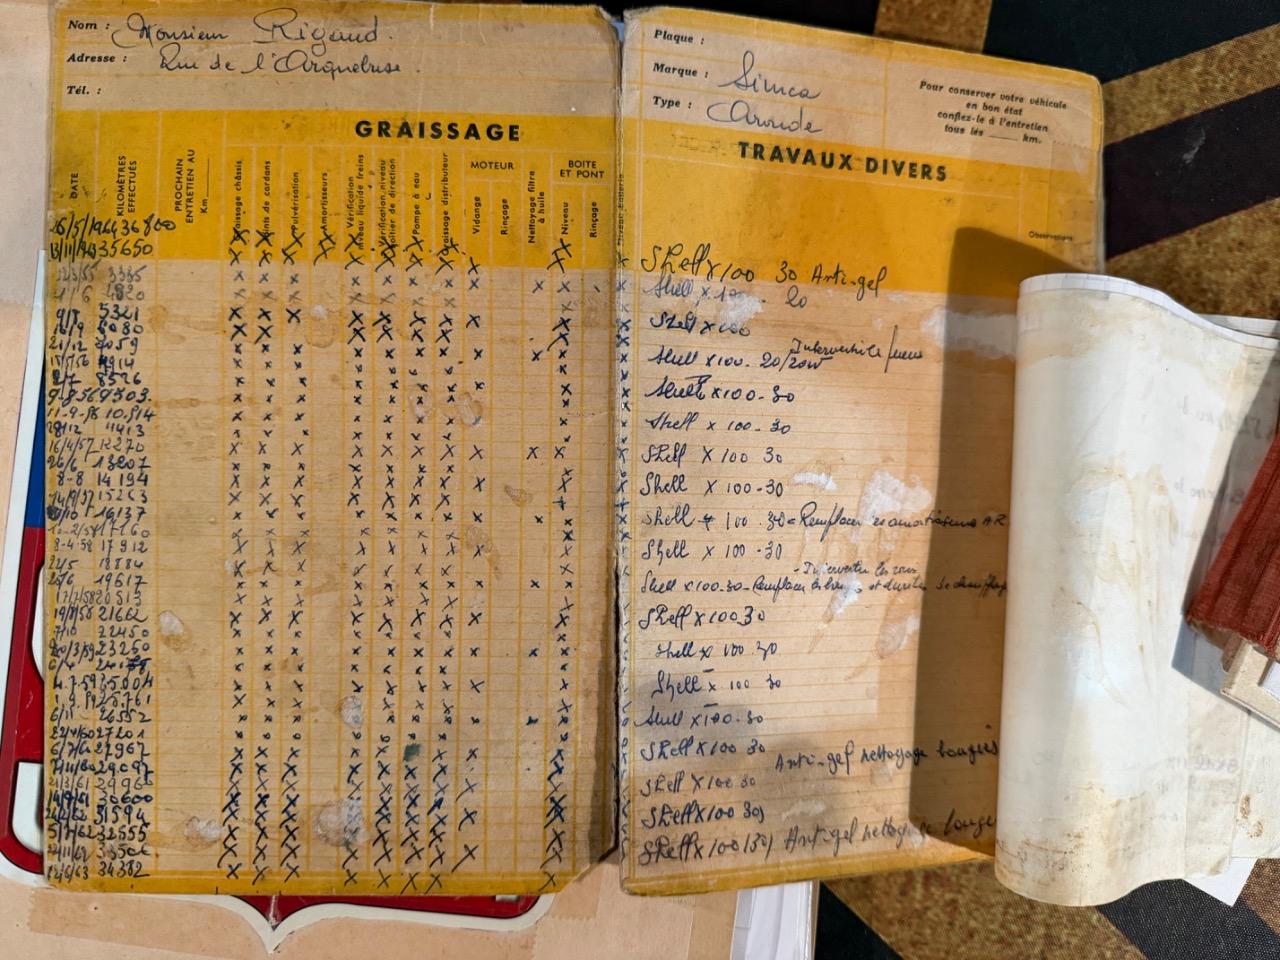 Nom : Monsieur Rigaud.
Adresse : Rue de l'Arquebuse.
Tél. :
GRAISSAGE
DATE
KILOMÈTRES EFFECTUÉS
PROCHAIN ENTRETIEN AU Km
Graissage châssis
Joints de cardans
Pulvérisation
Amortisseurs
Vérification niveau liquide freins
Vérification niveau boîtier de direction
Pompe à eau
Graissage distributeur
MOTEUR
Vidange
Rinçage
Nettoyage filtre à huile
BOITE ET PONT
Niveau
Rinçage
26/5/1964 36800
13/11/1963 35650
12/3/55 3335
4820
9/8 5321
16/9 6080
21/12 7059
7914
2/7 8526
9-8-56 9503
11-9-56 10.914
28/12 11413
16/4/57 12270
26/6 13207
8-8 14194
14/9/57 15263
16137
17160
8-4-58 17912
22/5 18884
25/6 19617
17/7/58 20513
19/8/58 21662
7/10 22450
20/3/59 23250
6/4
4.7.59 25.004
25.761
6/11 26552
22/4/60 27201
6/7/60 27967
7/11/60 29097
21/3/61
14/9/61 30600
24/2/62 31594
5/7/62 32555
12/6/63 34382
Plaque :
Marque : Simca
Type : Aronde
Pour conserver votre véhicule
en bon état
confiez-le à l'entretien
tous les ____ km.
TRAVAUX DIVERS
Observations
Shell X100 30 Anti-gel
Shell X 20
Shell X100
Intervertir les pneus
Shell X100. 20/20W
Shell X100-30
Shell X 100-30
Shell X 100 30
Shell X 100-30
Shell X 100.30 = Remplacer les amortisseurs AR
Shell X 100-30
- Intervertir les roues
Shell X100.30 - Remplacer et durites de chauffage
Shell X100 30
Shell X 100 30
Shell X 100 30
Shell X100.30
Shell X100 30
Anti-gel nettoyage bougies
Shell X100 30
Shell X100 30
Shell X100 (30) Anti-gel nettoyage bougies